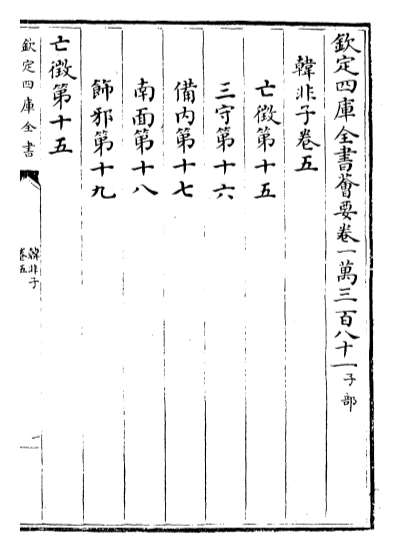 欽定四庫全書薈要卷一萬三百八十一子部
韓非子卷五
亡徵第十五
三守第十六
備内第十七
南面第十八
飾邪第十九
亡徵第十五
欽定四庫全書
韓非子
卷五
一